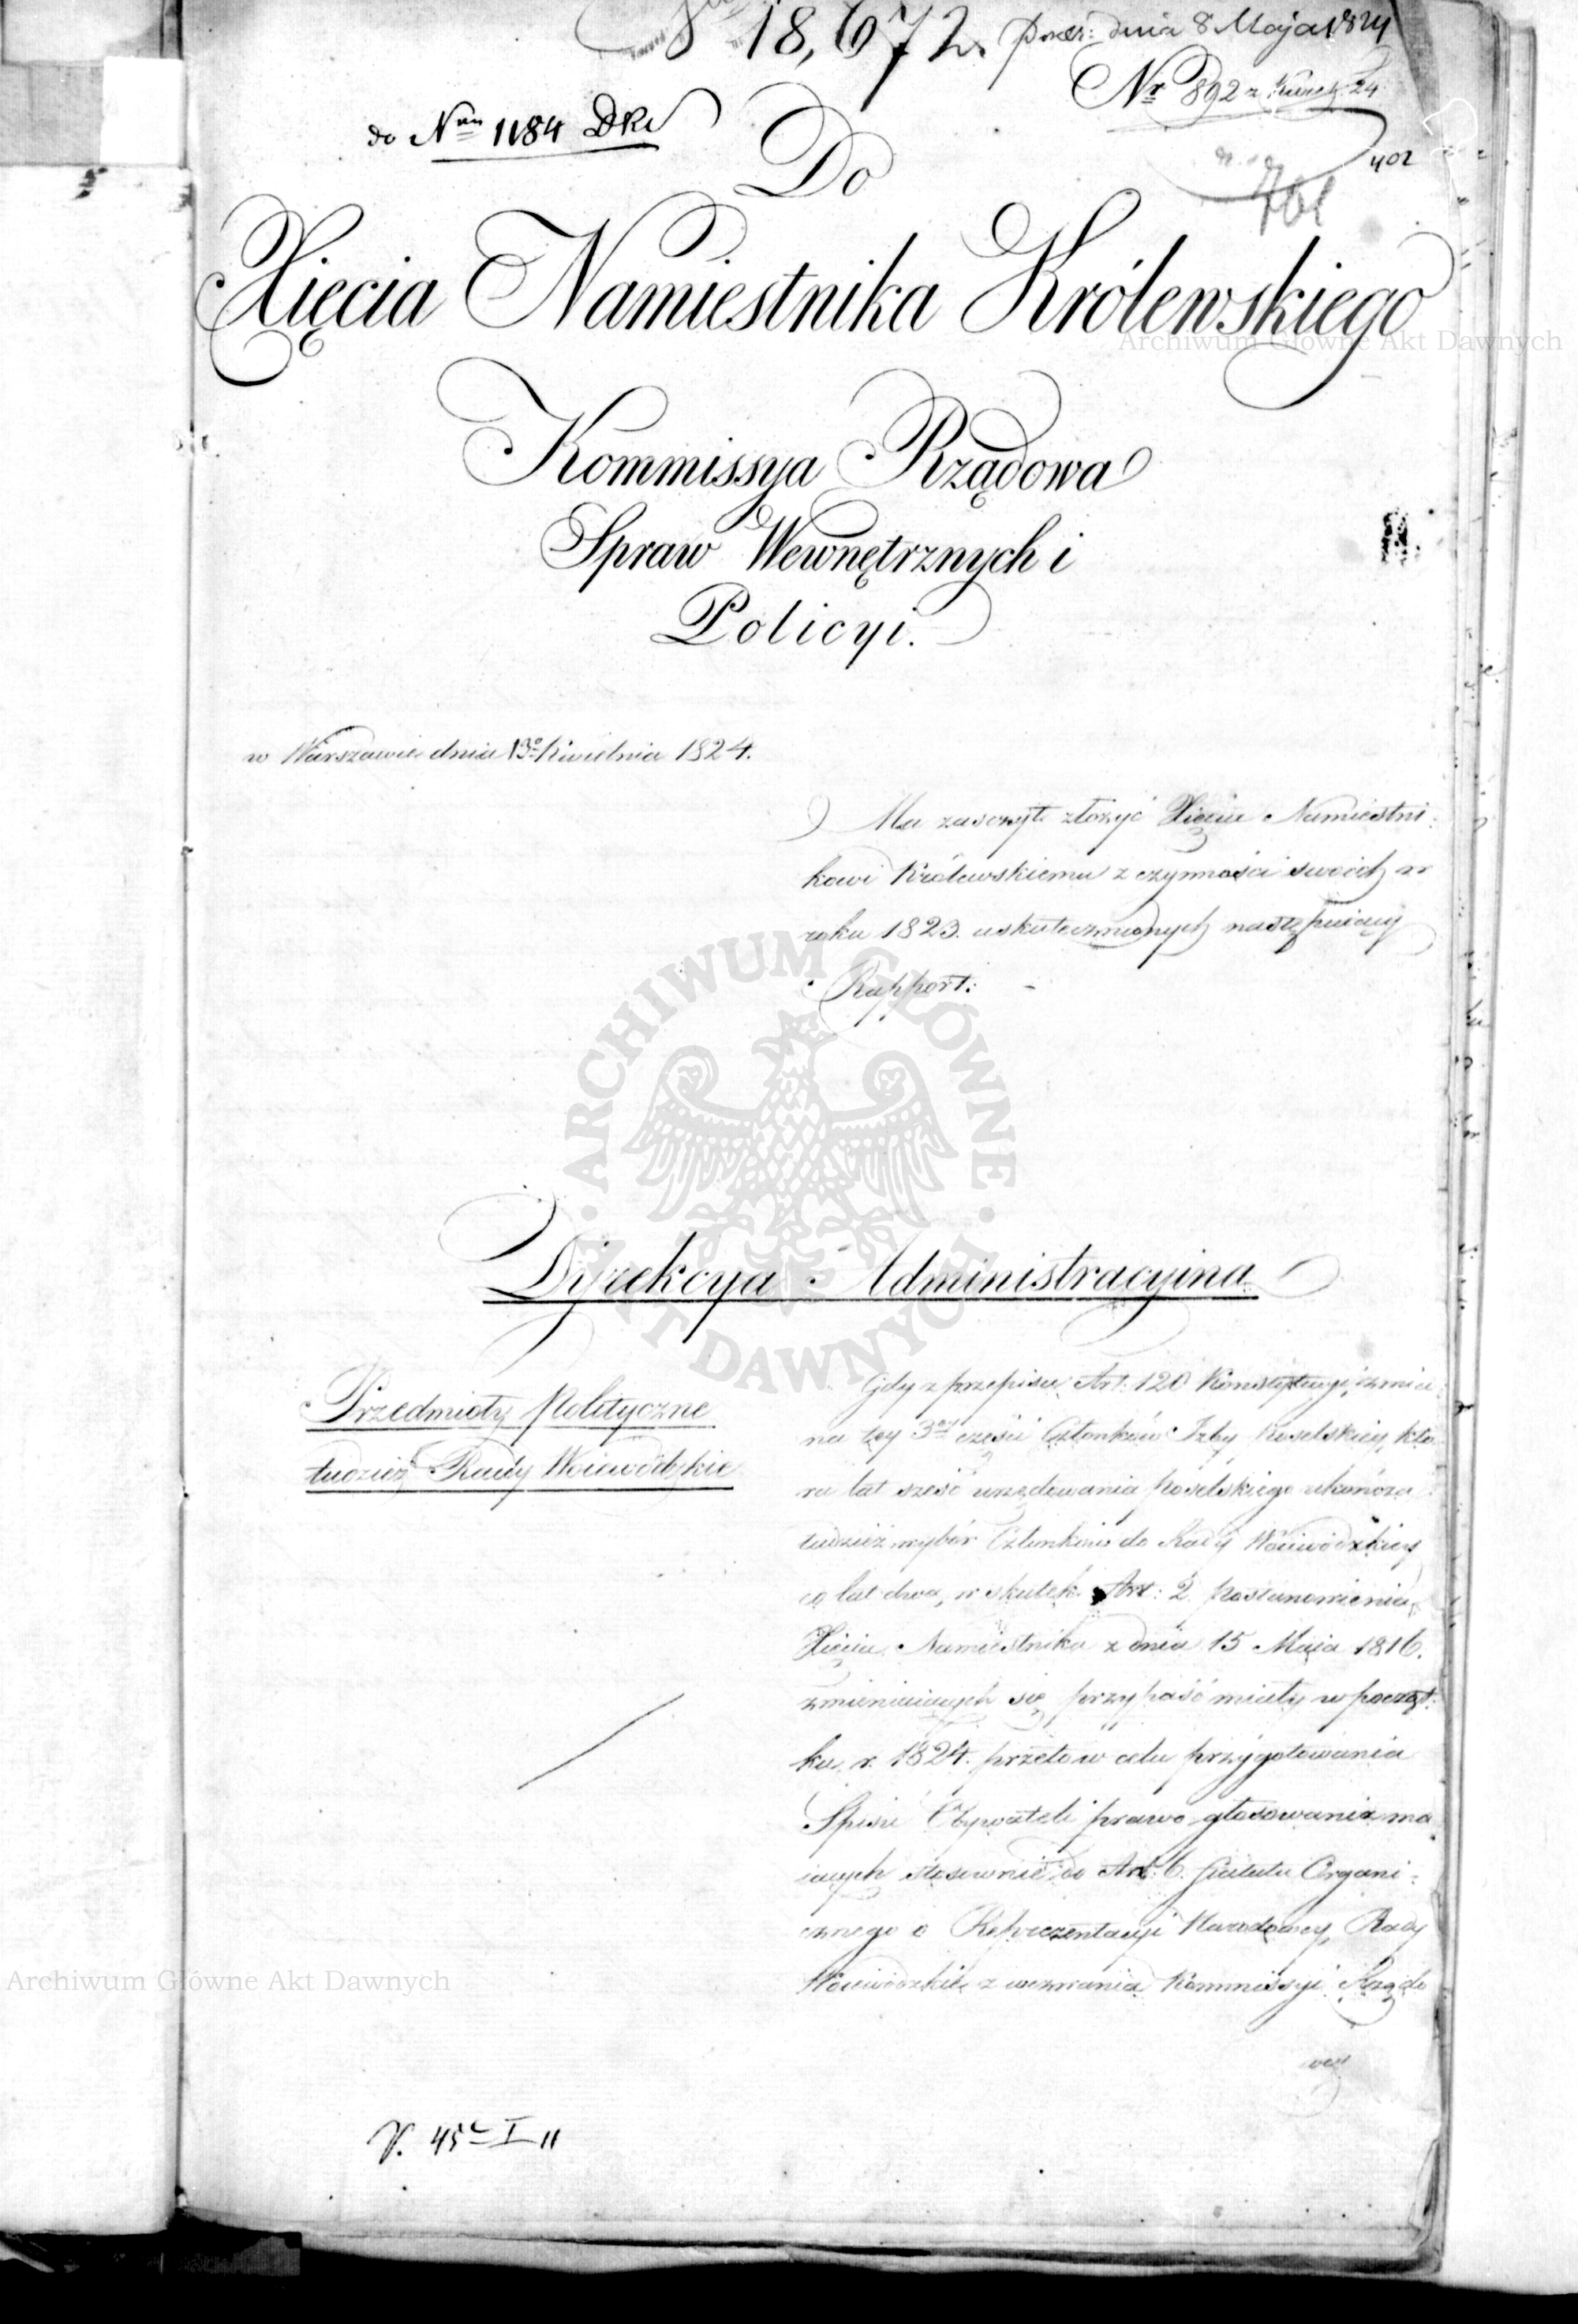 18,672. prez: dnia 8 Maja 1824
Nr 892 24
do Nru 1184 DKs
402
701
Do
Xięcia Namiestnika Królewskiego
Kommissya Rządowa
Spraw Wewnętrznych i
Policyi.
w Warszawie dnia 13o Kwietnia 1824.
Ma zaszczyt złożyć Xięciu Namiestni:
kowi Królewskiemu z czynności swoich w
roku 1823. uskutecznionych następuiący
Rapport:
Dyrekcya Administracyina
Przedmioty Polityczne
tudzież Rady Woiewódzkie
Gdy z przepisu Art: 120 Konstytucyi, zmia
na tey 3ey części Członków Izby Poselskiey, któ
ra lat sześć urzędowania Poselskiego ukończa
tudzież wybór Członków do Rady Woiewódzkiey
co lat dwa, w skutek Art: 2 Postanowienia
Xięcia Namiestnika z dnia 15 Maia 1816.
zmieniaiących się przypaść miały w począt:
ku r. 1824. przeto w celu przygotowania
Spisu Obywateli prawo głosowania ma
iących stosownie do Art: 6. Statutu Organi:
cznego o Reprezentacyi Narodowey, Rady
Woiewódzkie z wezwania Kommissyi Rządo
wey
V. 45 I 11
Archiwum Główne Akt Dawnych
ARCHIWUM GŁÓWNE AKT DAWNYCH
Archiwum Główne Akt Dawnych